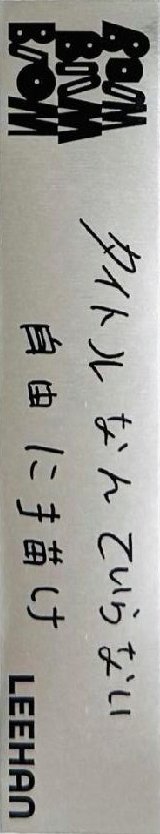 BOOM
BOOM
BOOM
タイトルなんていらない
自由に手描け
LEEHAN